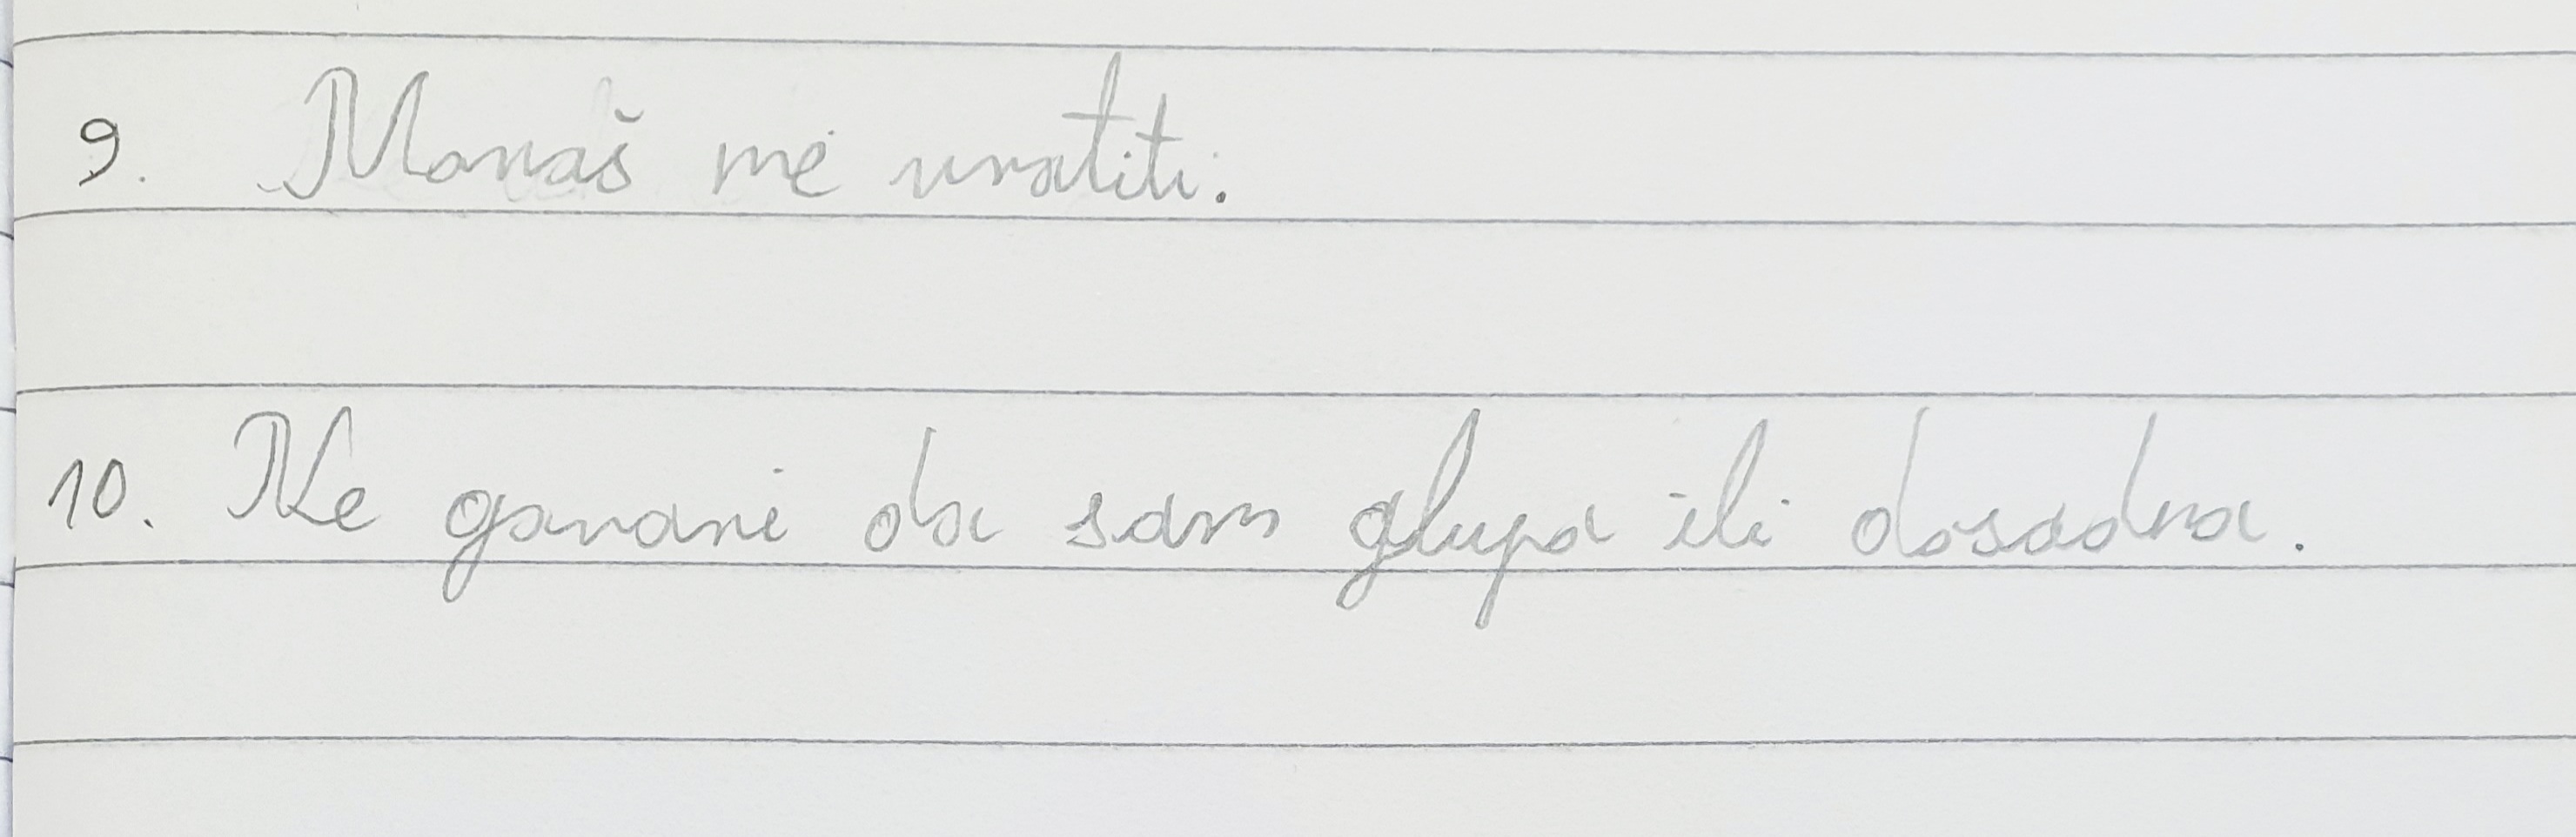 9. Moraš me vratiti.
10. Ne govori da sam glupa ili dosadna.